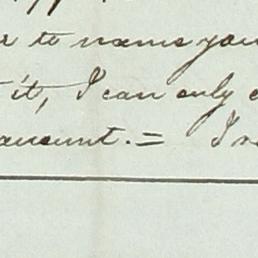 to name you
it, I can only
amount. = I